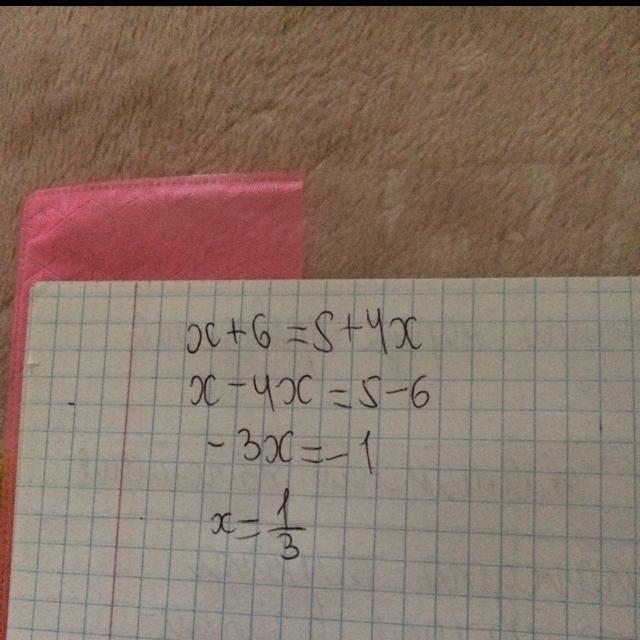 x+6=5+4x
x-4x=5-6
-3x=-1
x=1/3